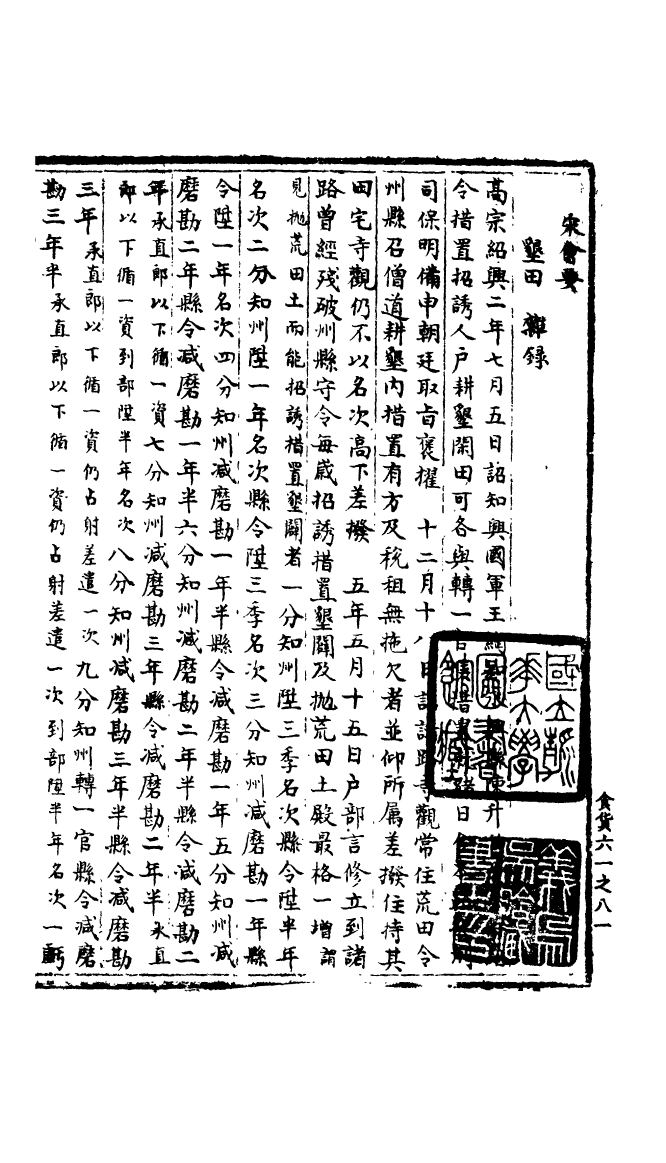 宋會要
墾田雜錄
高宗紹興二年七月五日詔知興國軍王綯知永興縣陳升
令措置招誘人戶耕墾閑田可各與轉一官
司保明備申朝廷取旨褒擢　十二月十八日詔諸路寺觀常住荒田令
州縣召僧道耕墾內措置有方及稅租無拖欠者並仰所屬差撥住持其
田宅寺觀仍不以名次高下差撥　五年五月十五日戶部言修立到諸
路曾經殘破州縣守令每歲招誘措置墾闢及拋荒田土殿最格一增謂
見拋荒田土而能招誘措置墾闢者一分知州陞三季名次縣令陞半年
名次二分知州陞一年名次縣令陞三季名次三分知州減磨勘一年縣
令陞一年名次四分知州減磨勘一年半縣令減磨勘一年五分知州減
磨勘二年縣令減磨勘一年半六分知州減磨勘二年半縣令減磨勘二
年承直郎以下循一資七分知州減磨勘三年縣令減磨勘二年半承直
郎以下循一資到部陞半年名次八分知州減磨勘三年半縣令減磨勘
三年承直郎以下循一資仍占射差遣一次九分知州轉一官縣令減磨
勘三年半承直郎以下循一資仍占射差遣一次到部陞半年名次一虧
食貨六一之八一